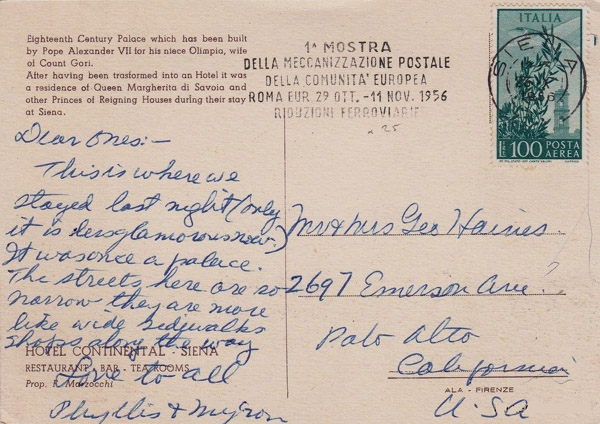 Eighteenth Century Palace which has been built
by Pope Alexander VII for his niece Olimpia, wife
of Count Gori.
After having been trasformed into an Hotel it was
a residence of Queen Margherita di Savoia and
other Princes of Reigning Houses during their stay
at Siena.
Dear Ones:-
This is where we
stayed last night (only
it is less glamorous now.)
It was once a palace.
The streets here are so
narrow they are more
like wide sidwalks
shops along the way
HOTEL CONTINENTAL - SIENA
RESTAURANT - BAR - TEA ROOMS
Prop. F. Marzocchi
Love to all
Phyllis & Myron
1ª MOSTRA
DELLA MECCANIZZAZIONE POSTALE
DELLA COMUNITA' EUROPEA
ROMA EUR 29 OTT. -11 NOV. 1956
RIDUZIONI FERROVIARIE
x 25
ITALIA
SIENA
LIRE 100 POSTA
AEREA
Mr & Mrs Geo Haines.
2697 Emerson Ave.
Palo Alto
California
ALA - FIRENZE
USA